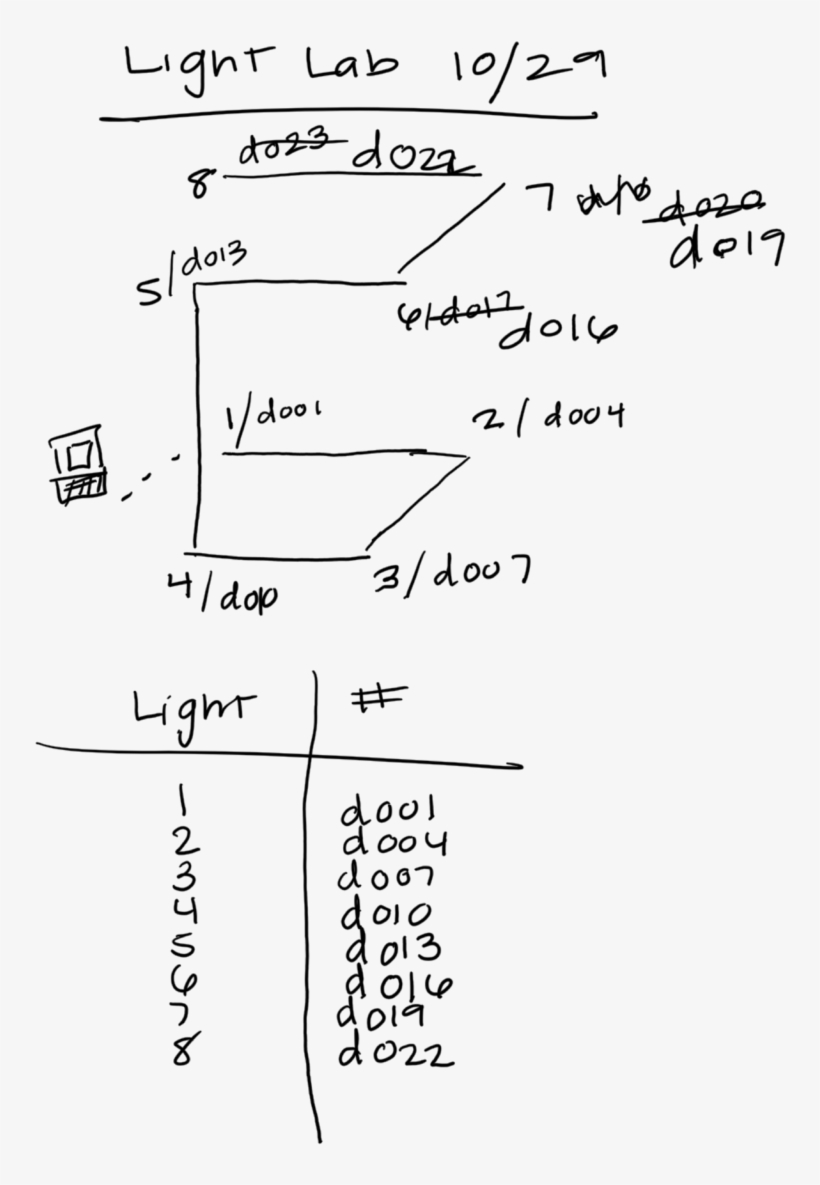 Light Lab 10/29
8 d023 d022
7 d020
d019
5/d013
6/d017 d016
1/d001
2/d004
4/d010
3/d007
Light #
1 d001
2 d004
3 d007
4 d010
5 d013
6 d016
7 d019
8 d022